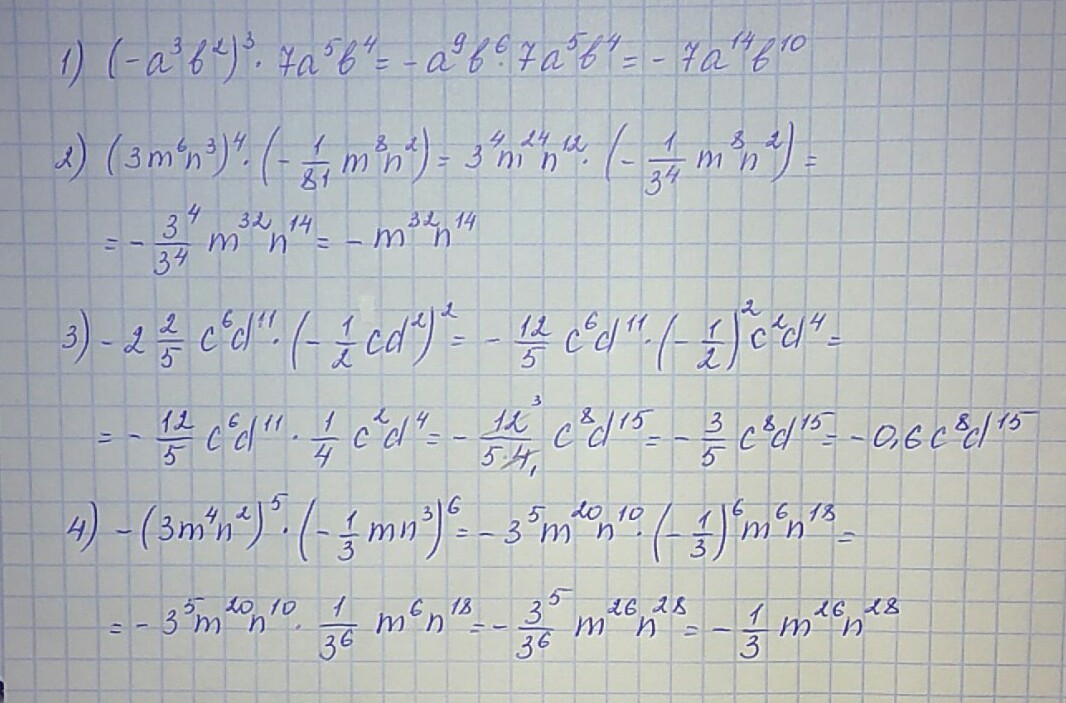 1) (-a³b²)³ · 7a⁵b⁴ = -a⁹b⁶ · 7a⁵b⁴ = - 7a¹⁴b¹⁰
2) (3m⁶n³)⁴ · (- 1/81 m⁸n²) = 3⁴m²⁴n¹² · (- 1/3⁴ m⁸n²) =
= - 3⁴/3⁴ m³²n¹⁴ = - m³²n¹⁴
3) - 2 2/5 c⁶d¹¹ · (- 1/2 cd²)² = - 12/5 c⁶d¹¹ · (- 1/2)² c²d⁴ =
= - 12/5 c⁶d¹¹ · 1/4 c²d⁴ = - 12³/5·4₁ c⁸d¹⁵ = - 3/5 c⁸d¹⁵ = - 0,6c⁸d¹⁵
4) - (3m⁴n²)⁵ · (- 1/3 mn³)⁶ = - 3⁵m²⁰n¹⁰ · (- 1/3)⁶ m⁶n¹⁸ =
= - 3⁵m²⁰n¹⁰ · 1/3⁶ m⁶n¹⁸ = - 3⁵/3⁶ m²⁶n²⁸ = - 1/3 m²⁶n²⁸